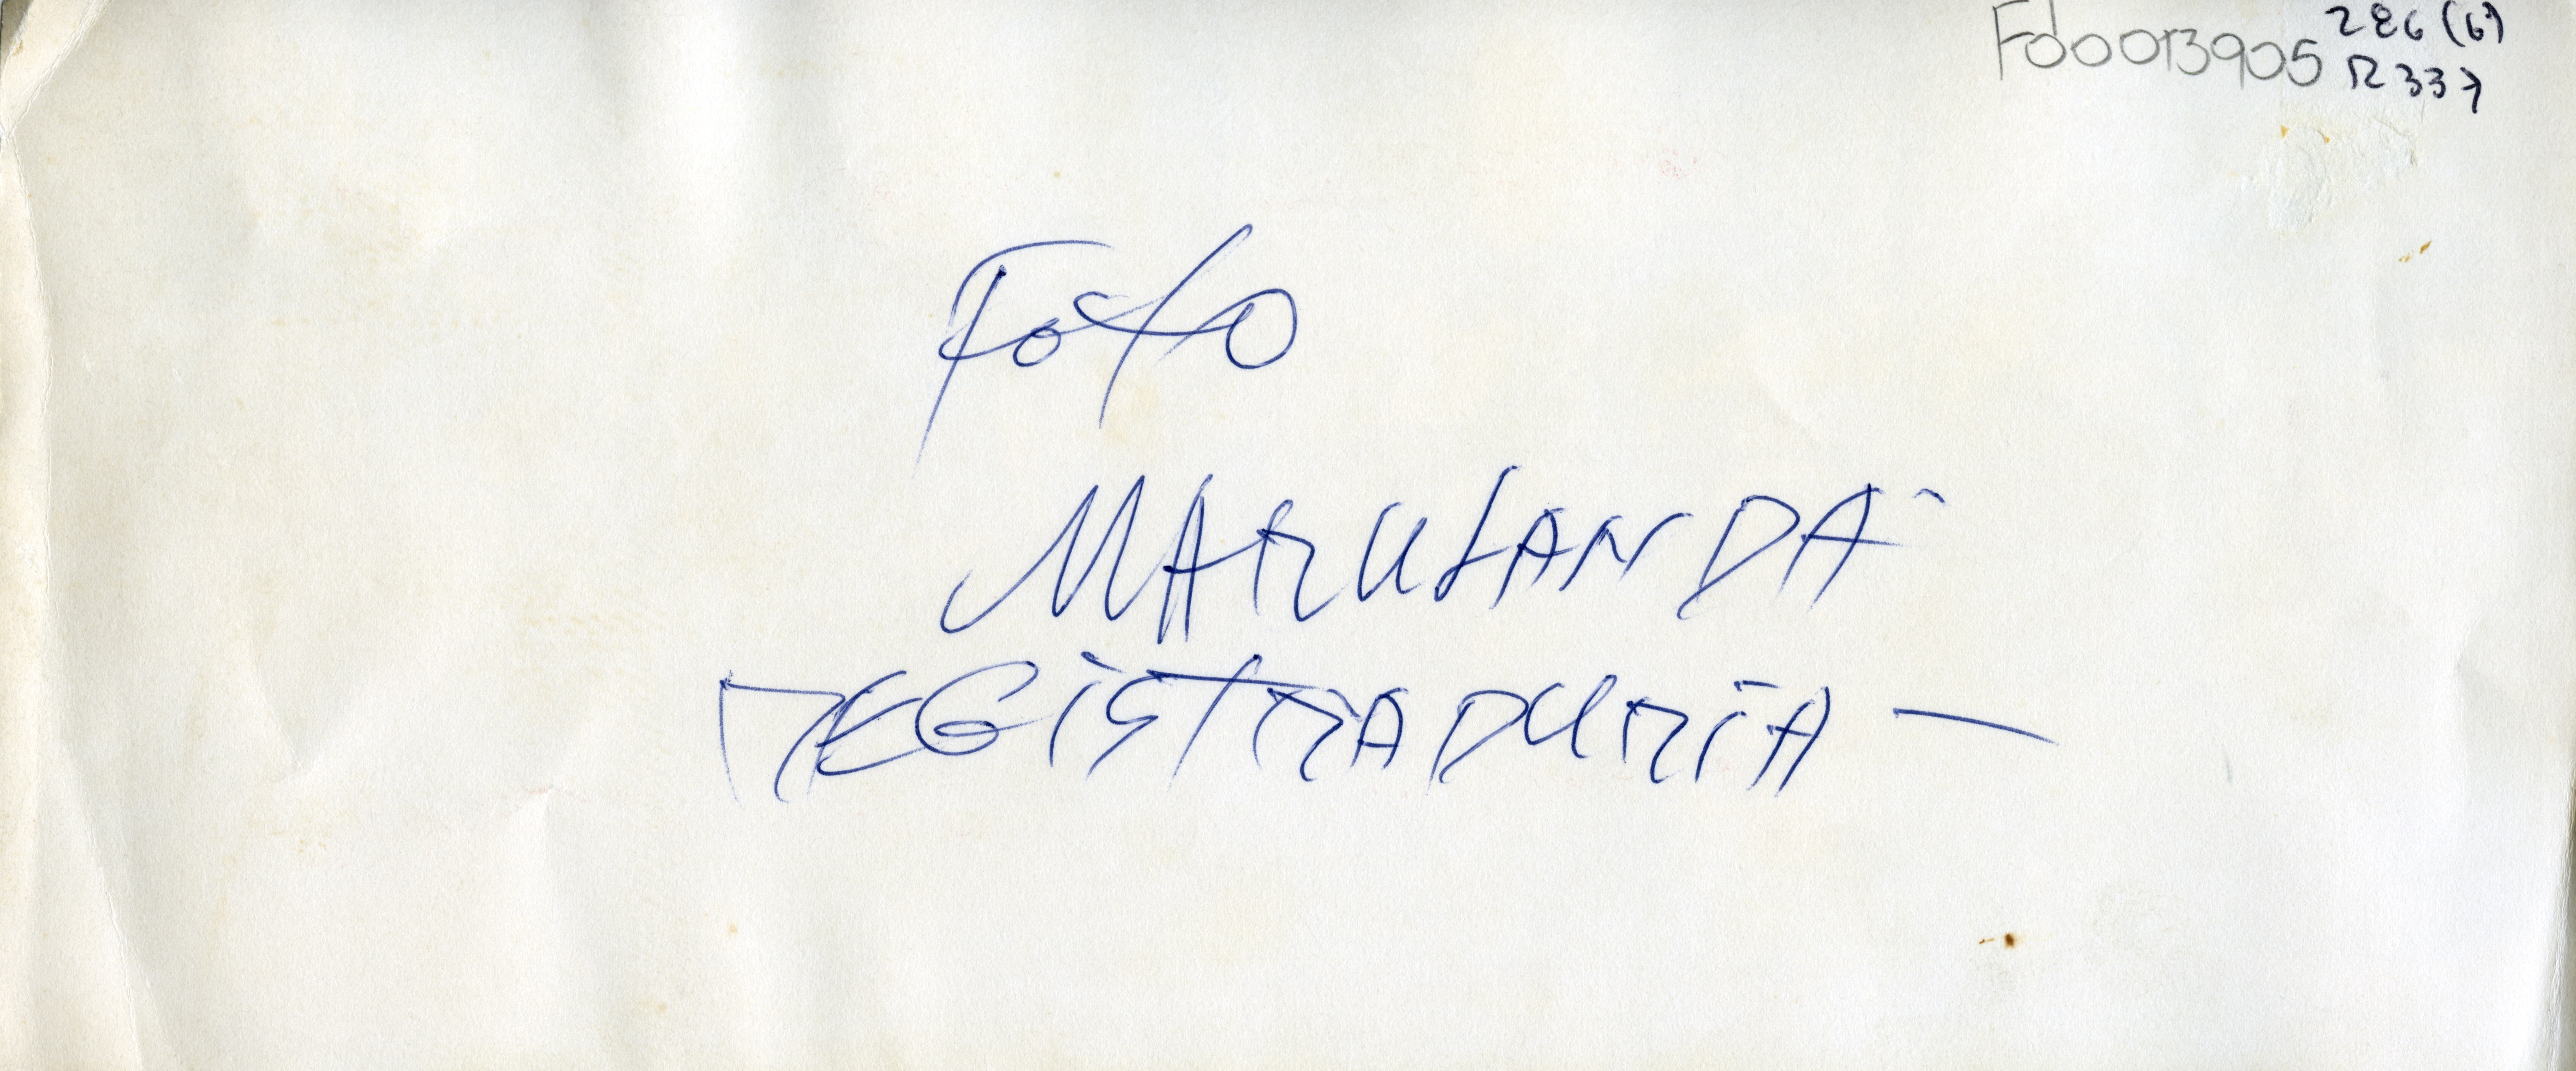 Fd0013905 286 (6)
R 337
Foto
MARULANDA
REGISTRADURIA —